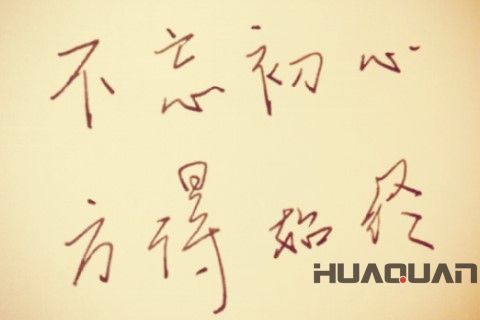 不忘初心
方得始终
HUAQUAN